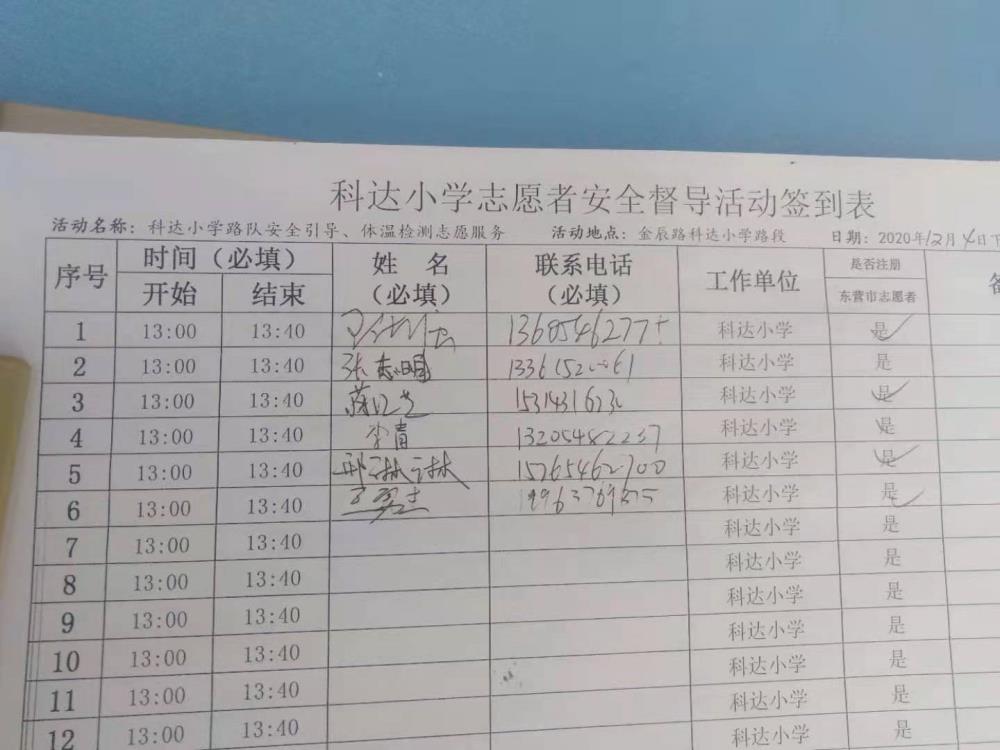 科达小学志愿者安全督导活动签到表
活动名称：科达小学路队安全引导、体温检测志愿服务 活动地点：金辰路科达小学路段 日期：2020年12月4日下
序号 时间（必填） 姓 名（必填） 联系电话（必填） 工作单位 是否注册
开始 结束 东营市志愿者
1 13:00 13:40 科达小学 是
2 13:00 13:40 张志明 科达小学 是
3 13:00 13:40 科达小学 是
4 13:00 13:40 李青 13205482237 科达小学 是
5 13:00 13:40 15765462700 科达小学 是
6 13:00 13:40 科达小学 是
7 13:00 13:40 科达小学 是
8 13:00 13:40 科达小学 是
9 13:00 13:40 科达小学 是
10 13:00 13:40 科达小学 是
11 13:00 13:40 科达小学 是
12 13:00 13:40 科达小学 是